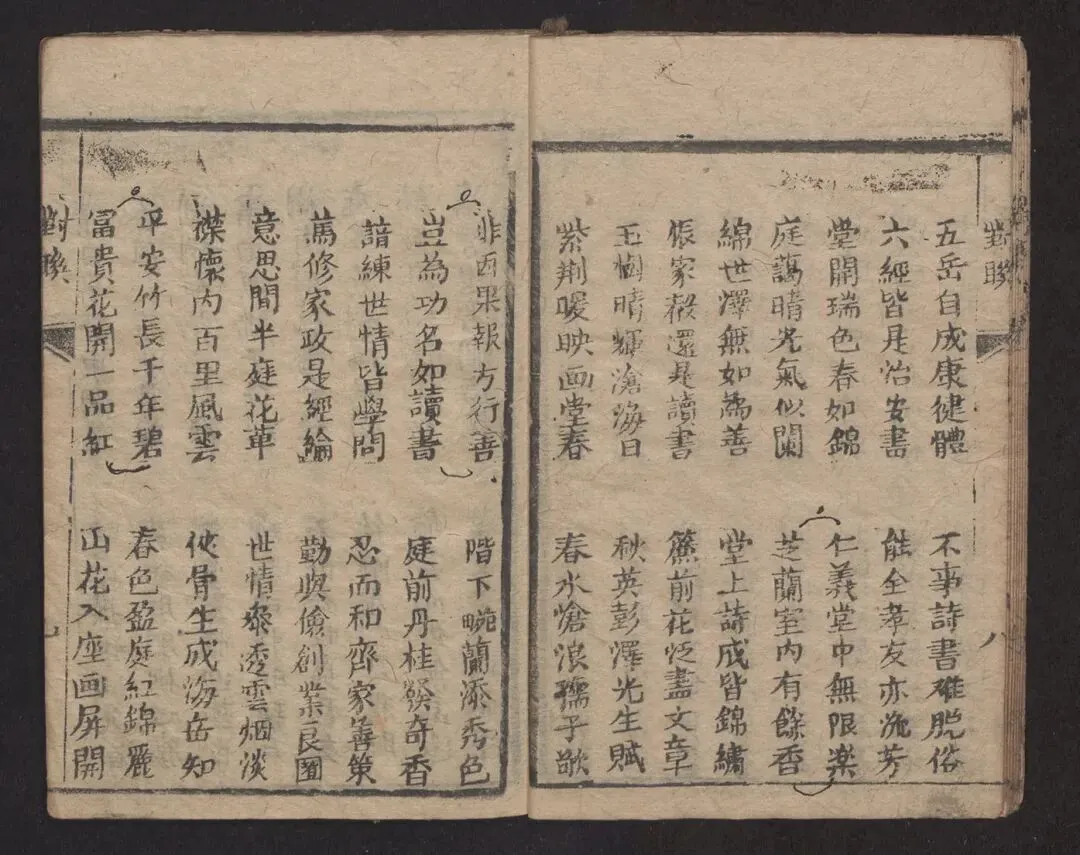 對聯
五岳自成康健體
六經皆是治安書
堂開瑞色春如錦
庭藹晴光氣似蘭
綿世澤無如為善
振家聲還是讀書
玉樹晴輝滄海日
紫荆暖映画堂春
八
不事詩書难脱俗
能全孝友亦流芳
仁義堂中無限楽
芝蘭室内有餘香
堂上詩成皆錦繡
簾前花泛盡文章
秋英彭澤光生賦
春水滄浪孺子歌
非因果報方行善
豈為功名如讀書
諳練世情皆學問
篤修家政是經綸
意思間半庭花草
襟懷内百里風雲
平安竹長千年碧
富貴花開一品紅
對聯
階下畹蘭添秀色
庭前丹桂發奇香
忍而和齊家善策
勤與儉創業良圖
世情叅透雲烟淡
骨生成海岳知
春色盈庭紅錦麗
山花入座画屏開